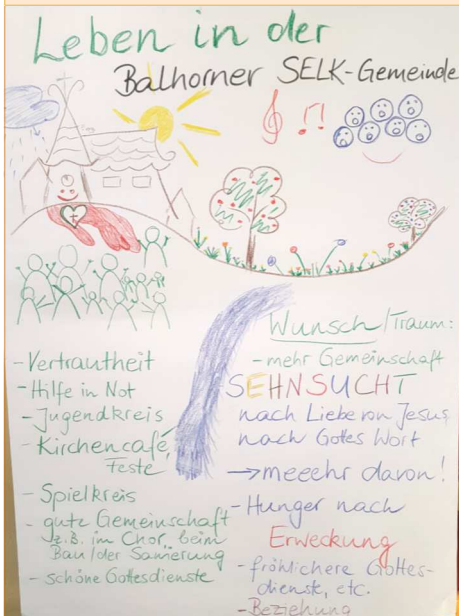 Leben in der
Balhorner SELK-Gemeinde
- Vertrautheit
- Hilfe in Not
- Jugendkreis
- Kirchencafé,
Feste
- Spielkreis
- gute Gemeinschaft
z.B. im Chor, beim
Bau/der Sanierung
- schöne Gottesdienste
Wunsch/Traum:
- mehr Gemeinschaft
SEHNSUCHT
nach Liebe von Jesus
nach Gottes Wort
→ meeehr davon!
- Hunger nach
Erweckung
- fröhlichere Gottes-
dienste, etc.
- Beziehung